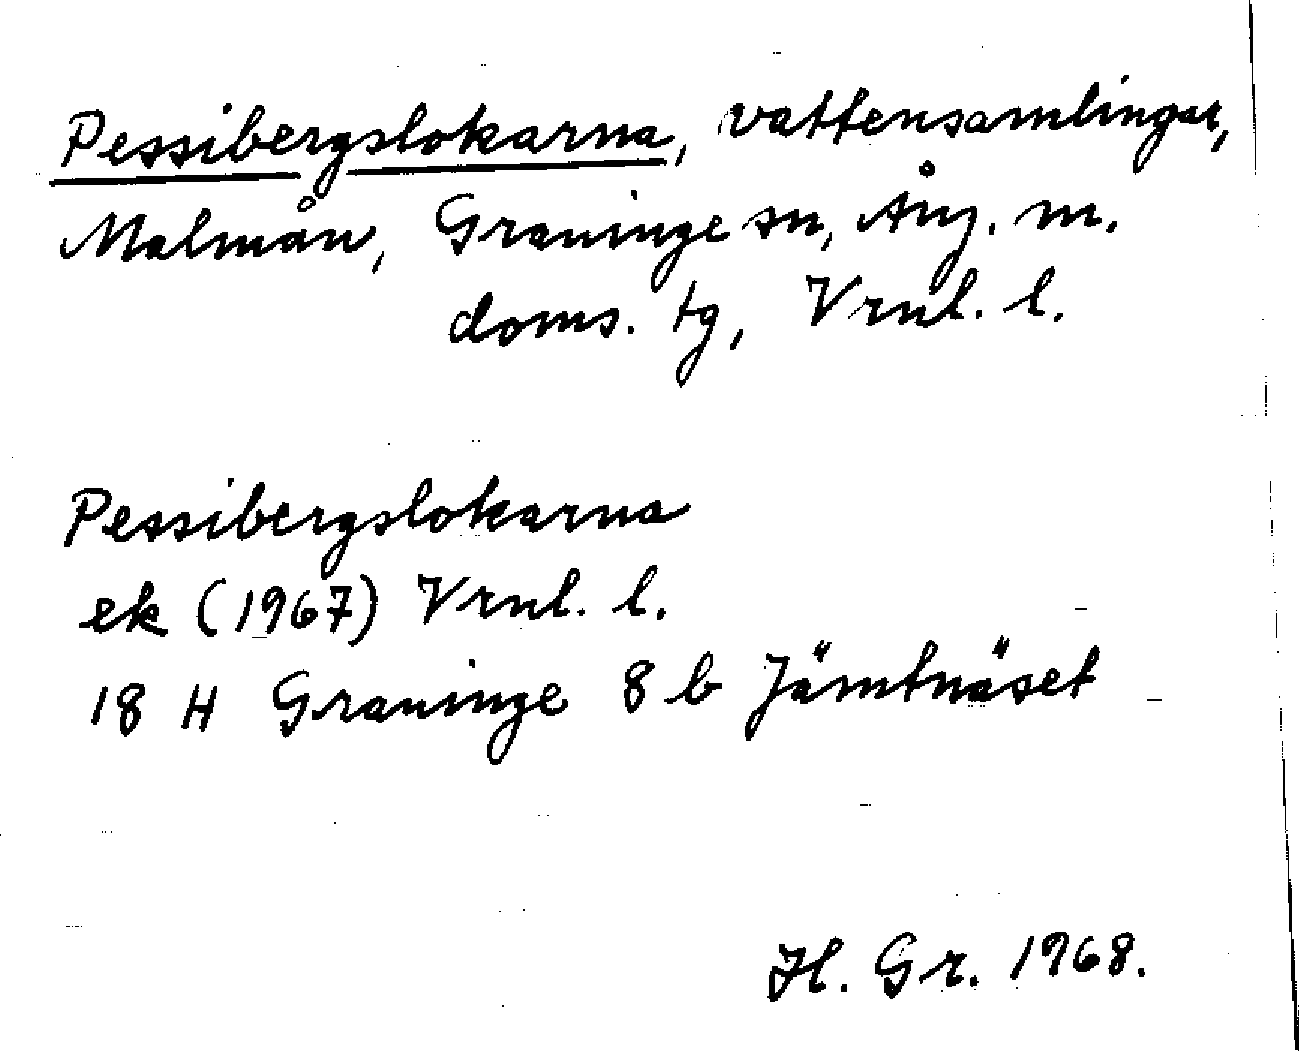 Pessibergslokarna, vattensamlingar,
Malmån, Graninge sn, Ång. m.
doms. tg, Vrnl. l.
Pessibergslokarna
ek (1967) Vrnl. l.
18 H Graninge 8 b Jämtnäset
H. Gr. 1968.